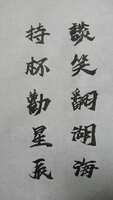 談笑翻湖海
持杯勸星辰